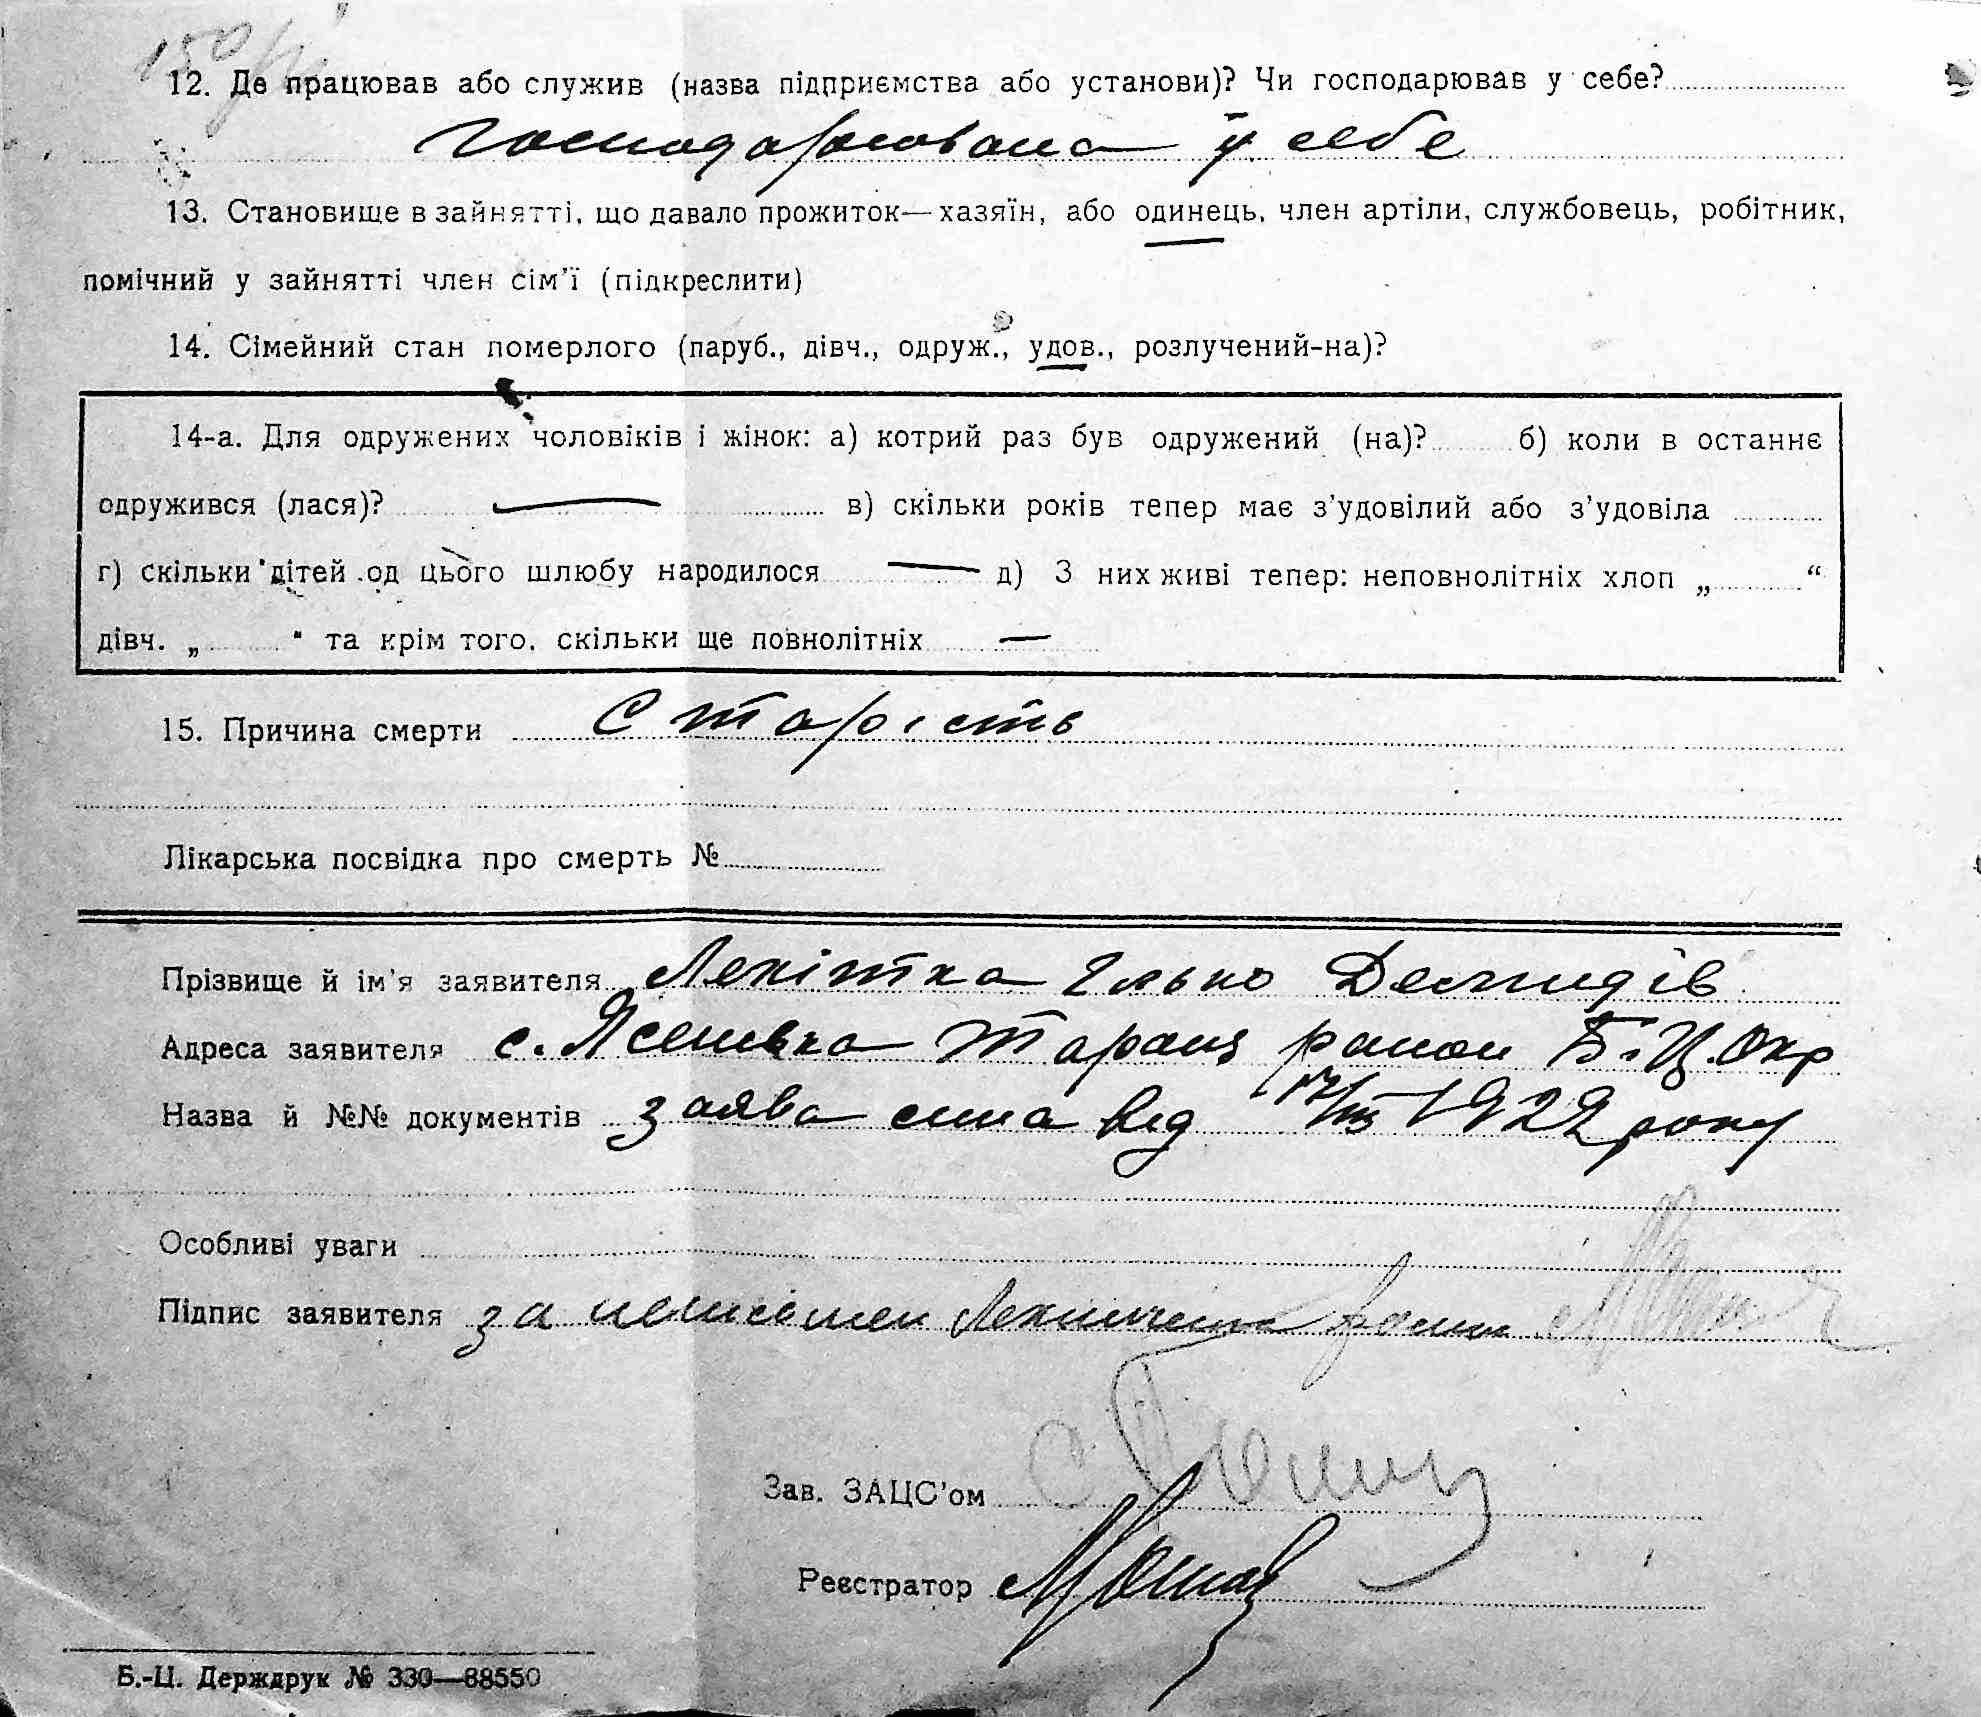 12. Де працював або служив (назва підприємства або установи)? Чи господарював у себе?
господарювала у себе
13. Становище в зайнятті, що давало прожиток—хазяїн, або одинець, член артіли, службовець, робітник,
помічний у зайнятті член сім'ї (підкреслити)
14. Сімейний стан померлого (паруб., дівч., одруж., удов., розлучений-на)?
14-а. Для одружених чоловіків і жінок: а) котрий раз був одружений (на)? б) коли в останнє
одружився (лася)? — в) скільки років тепер має з'удовілий або з'удовіла
г) скільки дітей од цього шлюбу народилося — д) З них живі тепер: неповнолітніх хлоп „ “
дівч. „ “ та крім того, скільки ще повнолітніх —
15. Причина смерти Старість
Лікарська посвідка про смерть №
Прізвище й ім'я заявителя Лекітка Ілько Демидів
Адреса заявителя с. Ясенівка Таращ район Б.Ц. Окр
Назва й №№ документів заява сина від 17/III 1929 року
Особливі уваги
Підпис заявителя за неписьмен
Зав. ЗАЦС'ом
Реєстратор
Б.-Ц. Держдрук № 330—88550